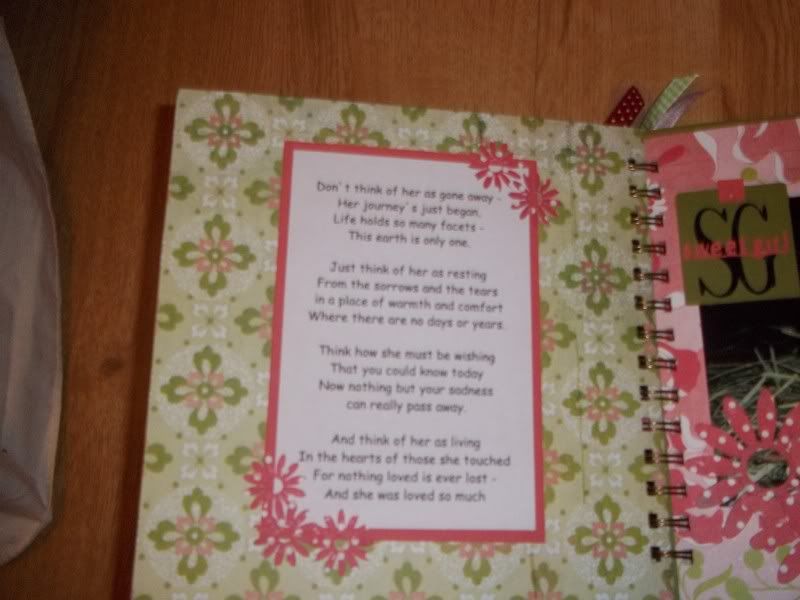 Don't think of her as gone away -
Her journey's just begun,
Life holds so many facets -
This earth is only one.
Just think of her as resting
From the sorrows and the tears
in a place of warmth and comfort
Where there are no days or years.
Think how she must be wishing
That you could know today
Now nothing but your sadness
can really pass away.
And think of her as living
In the hearts of those she touched
For nothing loved is ever lost -
And she was loved so much
SG
sweet girl